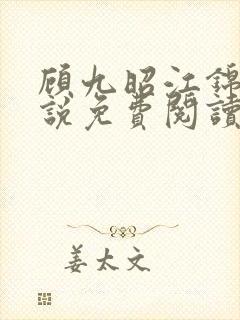 顾九昭江錦
說免費閱讀
姜太文